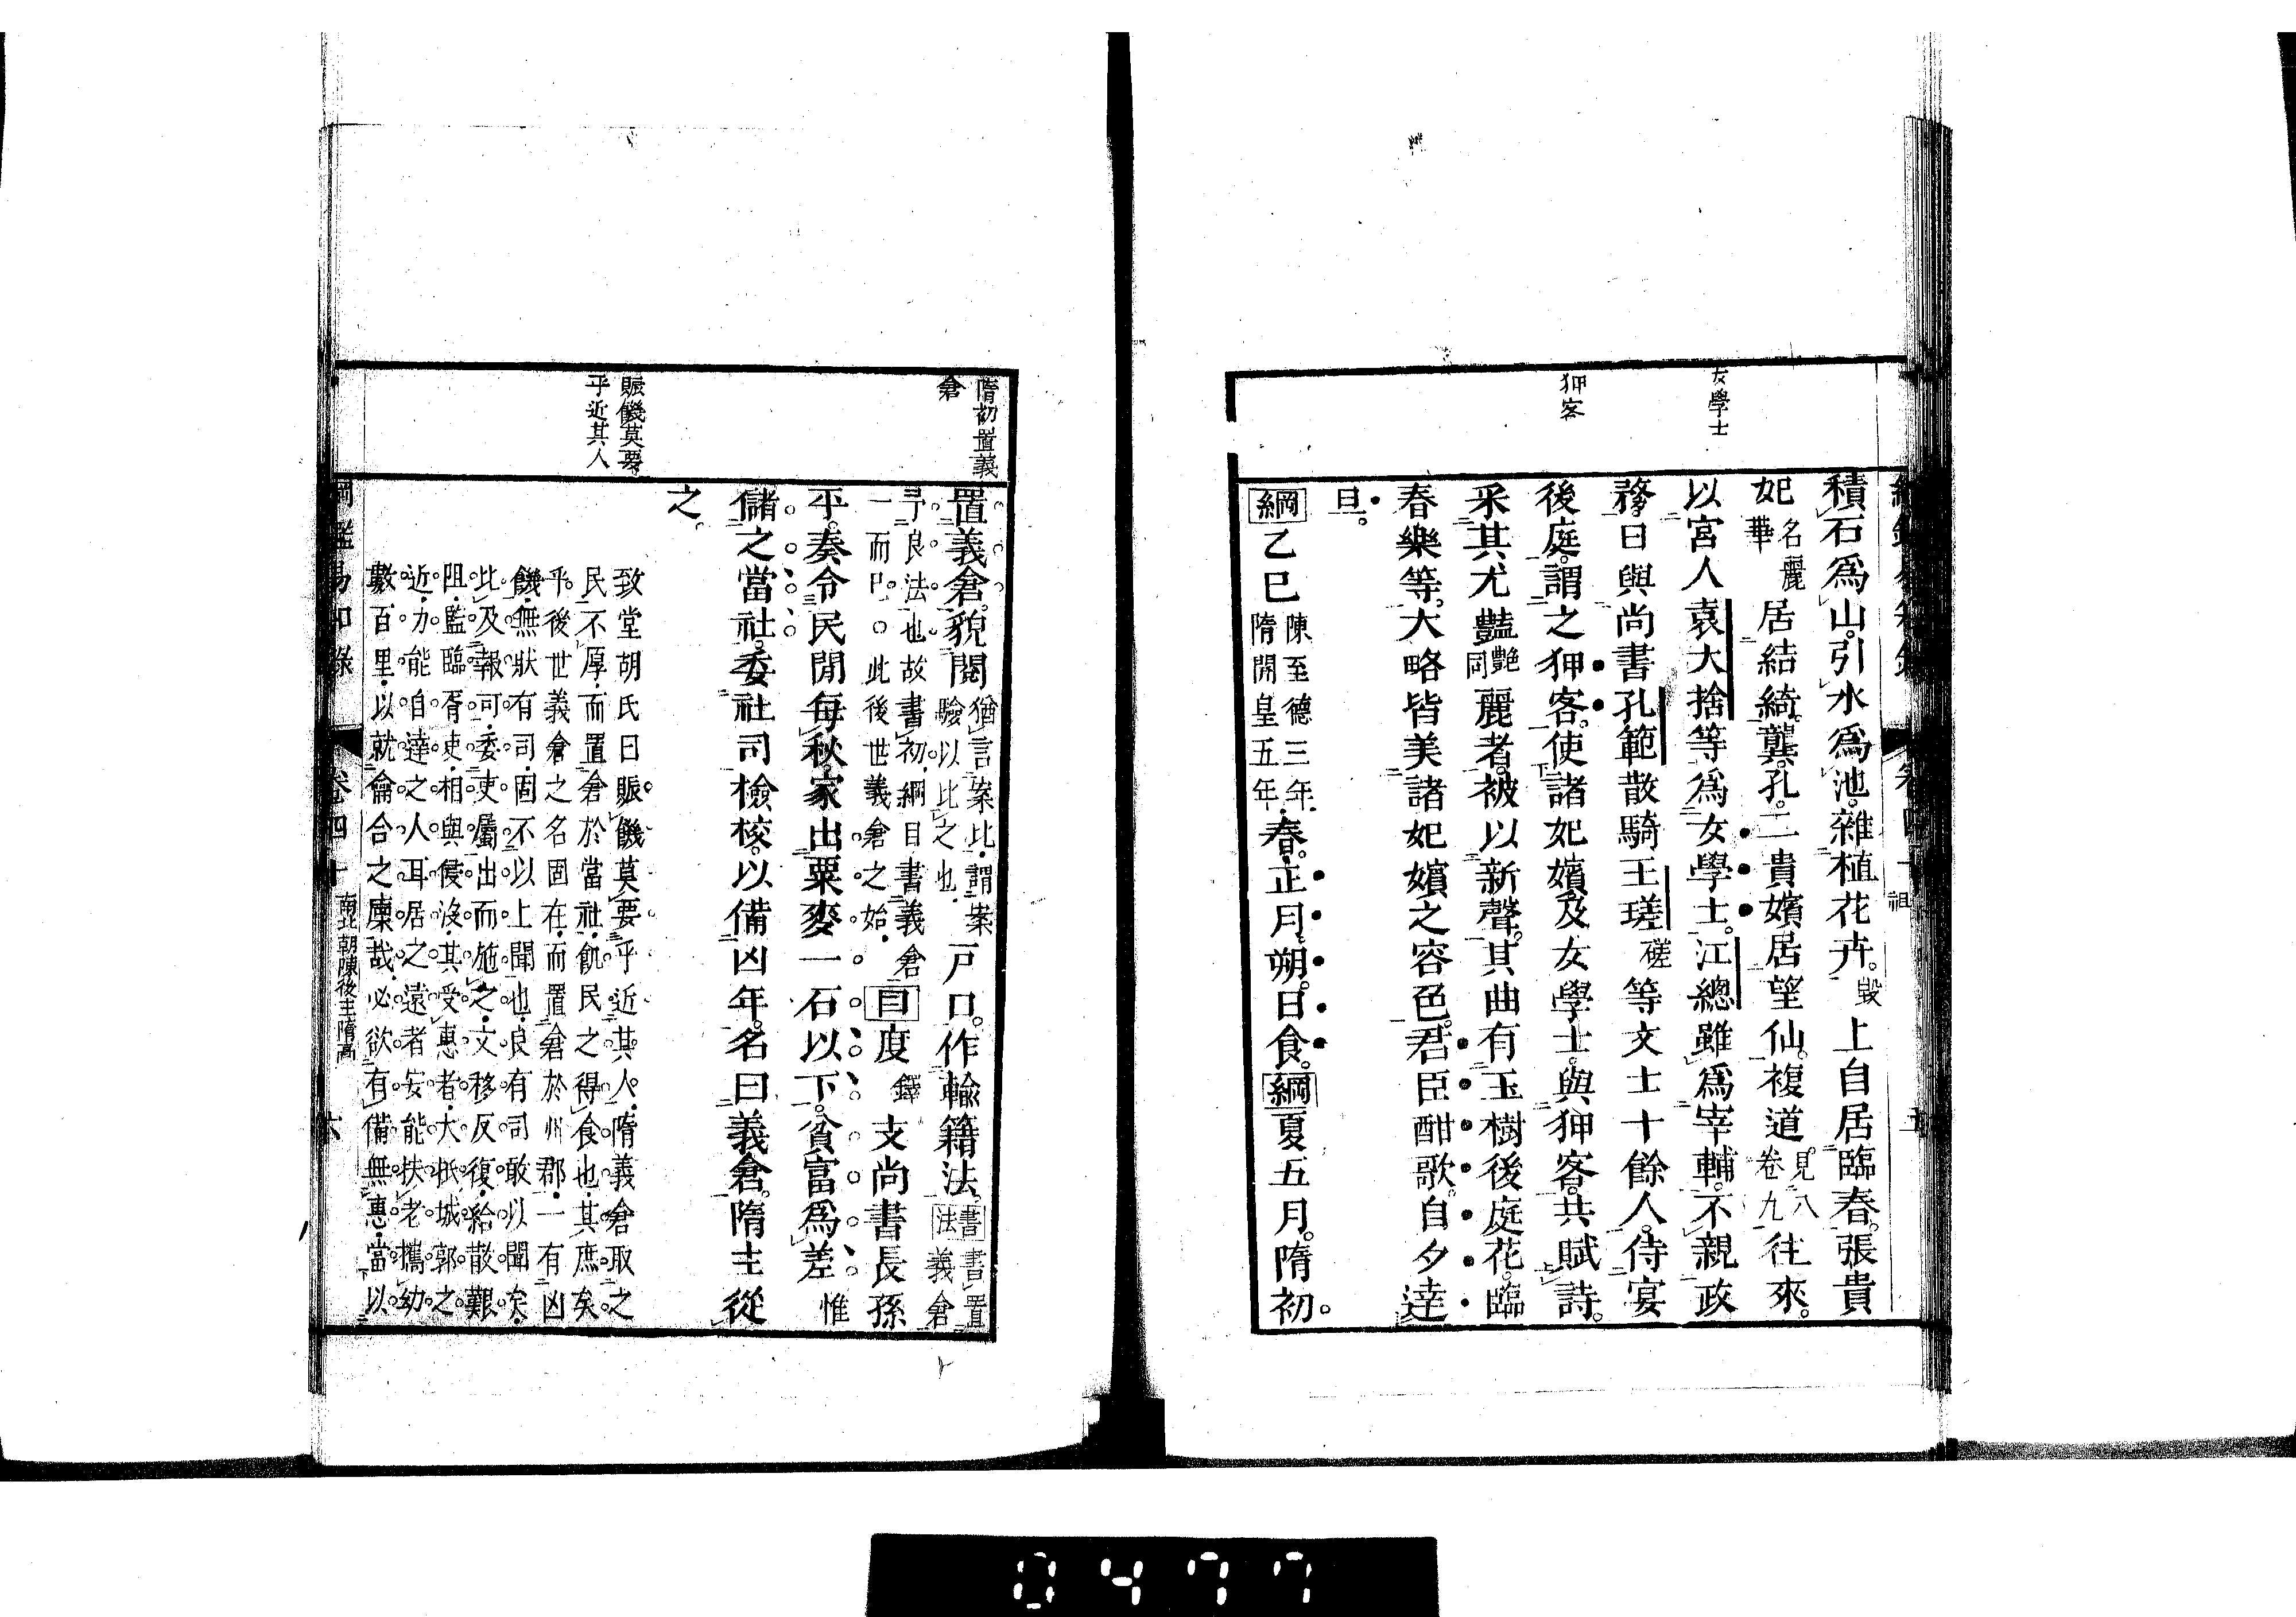 女學士
狎客
積石為山。引水為池。雜植花卉。毀上自居臨春。張貴
妃名麗華居結綺。龔孔二貴嬪居望仙。複道見八卷九往來。
以宮人袁大捨等為女學士。江總雖為宰輔。不親政
務。日與尚書孔範散騎王瑳磋等文士十餘人。侍宴
後庭。謂之狎客。使諸妃嬪及女學士。與狎客。共賦詩。
采其尤豔艶同麗者。被以新聲。其曲有玉樹後庭花。臨
春樂等。大略皆美諸妃嬪之容色。君臣酣歌。自夕達
旦。
綱乙巳陳至德三年隋開皇五年春。正月。朔。日食。綱夏五月。隋初。
隋初置義
倉
賑饑莫要
乎近其人
置義倉。貌閱猶言案比。謂案驗以比之也戶口。作輸籍法。書法書置義倉
予良法也故書初綱目書義倉一而已。○此後世義倉之始。目度鐸支尚書長孫
平。奏令民間每秋。家出粟麥一石以下。貧富為差惟
儲之當社。委社司檢校。以備凶年。名曰義倉。隋主從
之。
致堂胡氏曰賑饑莫要乎近其人。隋義倉取之
民不厚。而置倉於當社。飢民之得食也。其庶矣
乎。後世義倉之名固在。而置倉於州郡。一有凶
饑。無狀有司。固不以上聞也。良有司敢以聞矣。
比及報可。委吏屬出而施之。文移反復。給散艱
阻。監臨胥吏。相與侵沒。其受惠者。大抵城郭之
近。力能自達之人耳。居之遠者。安能扶老攜幼
數百里。以就龠合之廩哉。必欲有備無患。當以
綱鑑易知錄 卷四十 南北朝陳後主隋高 六